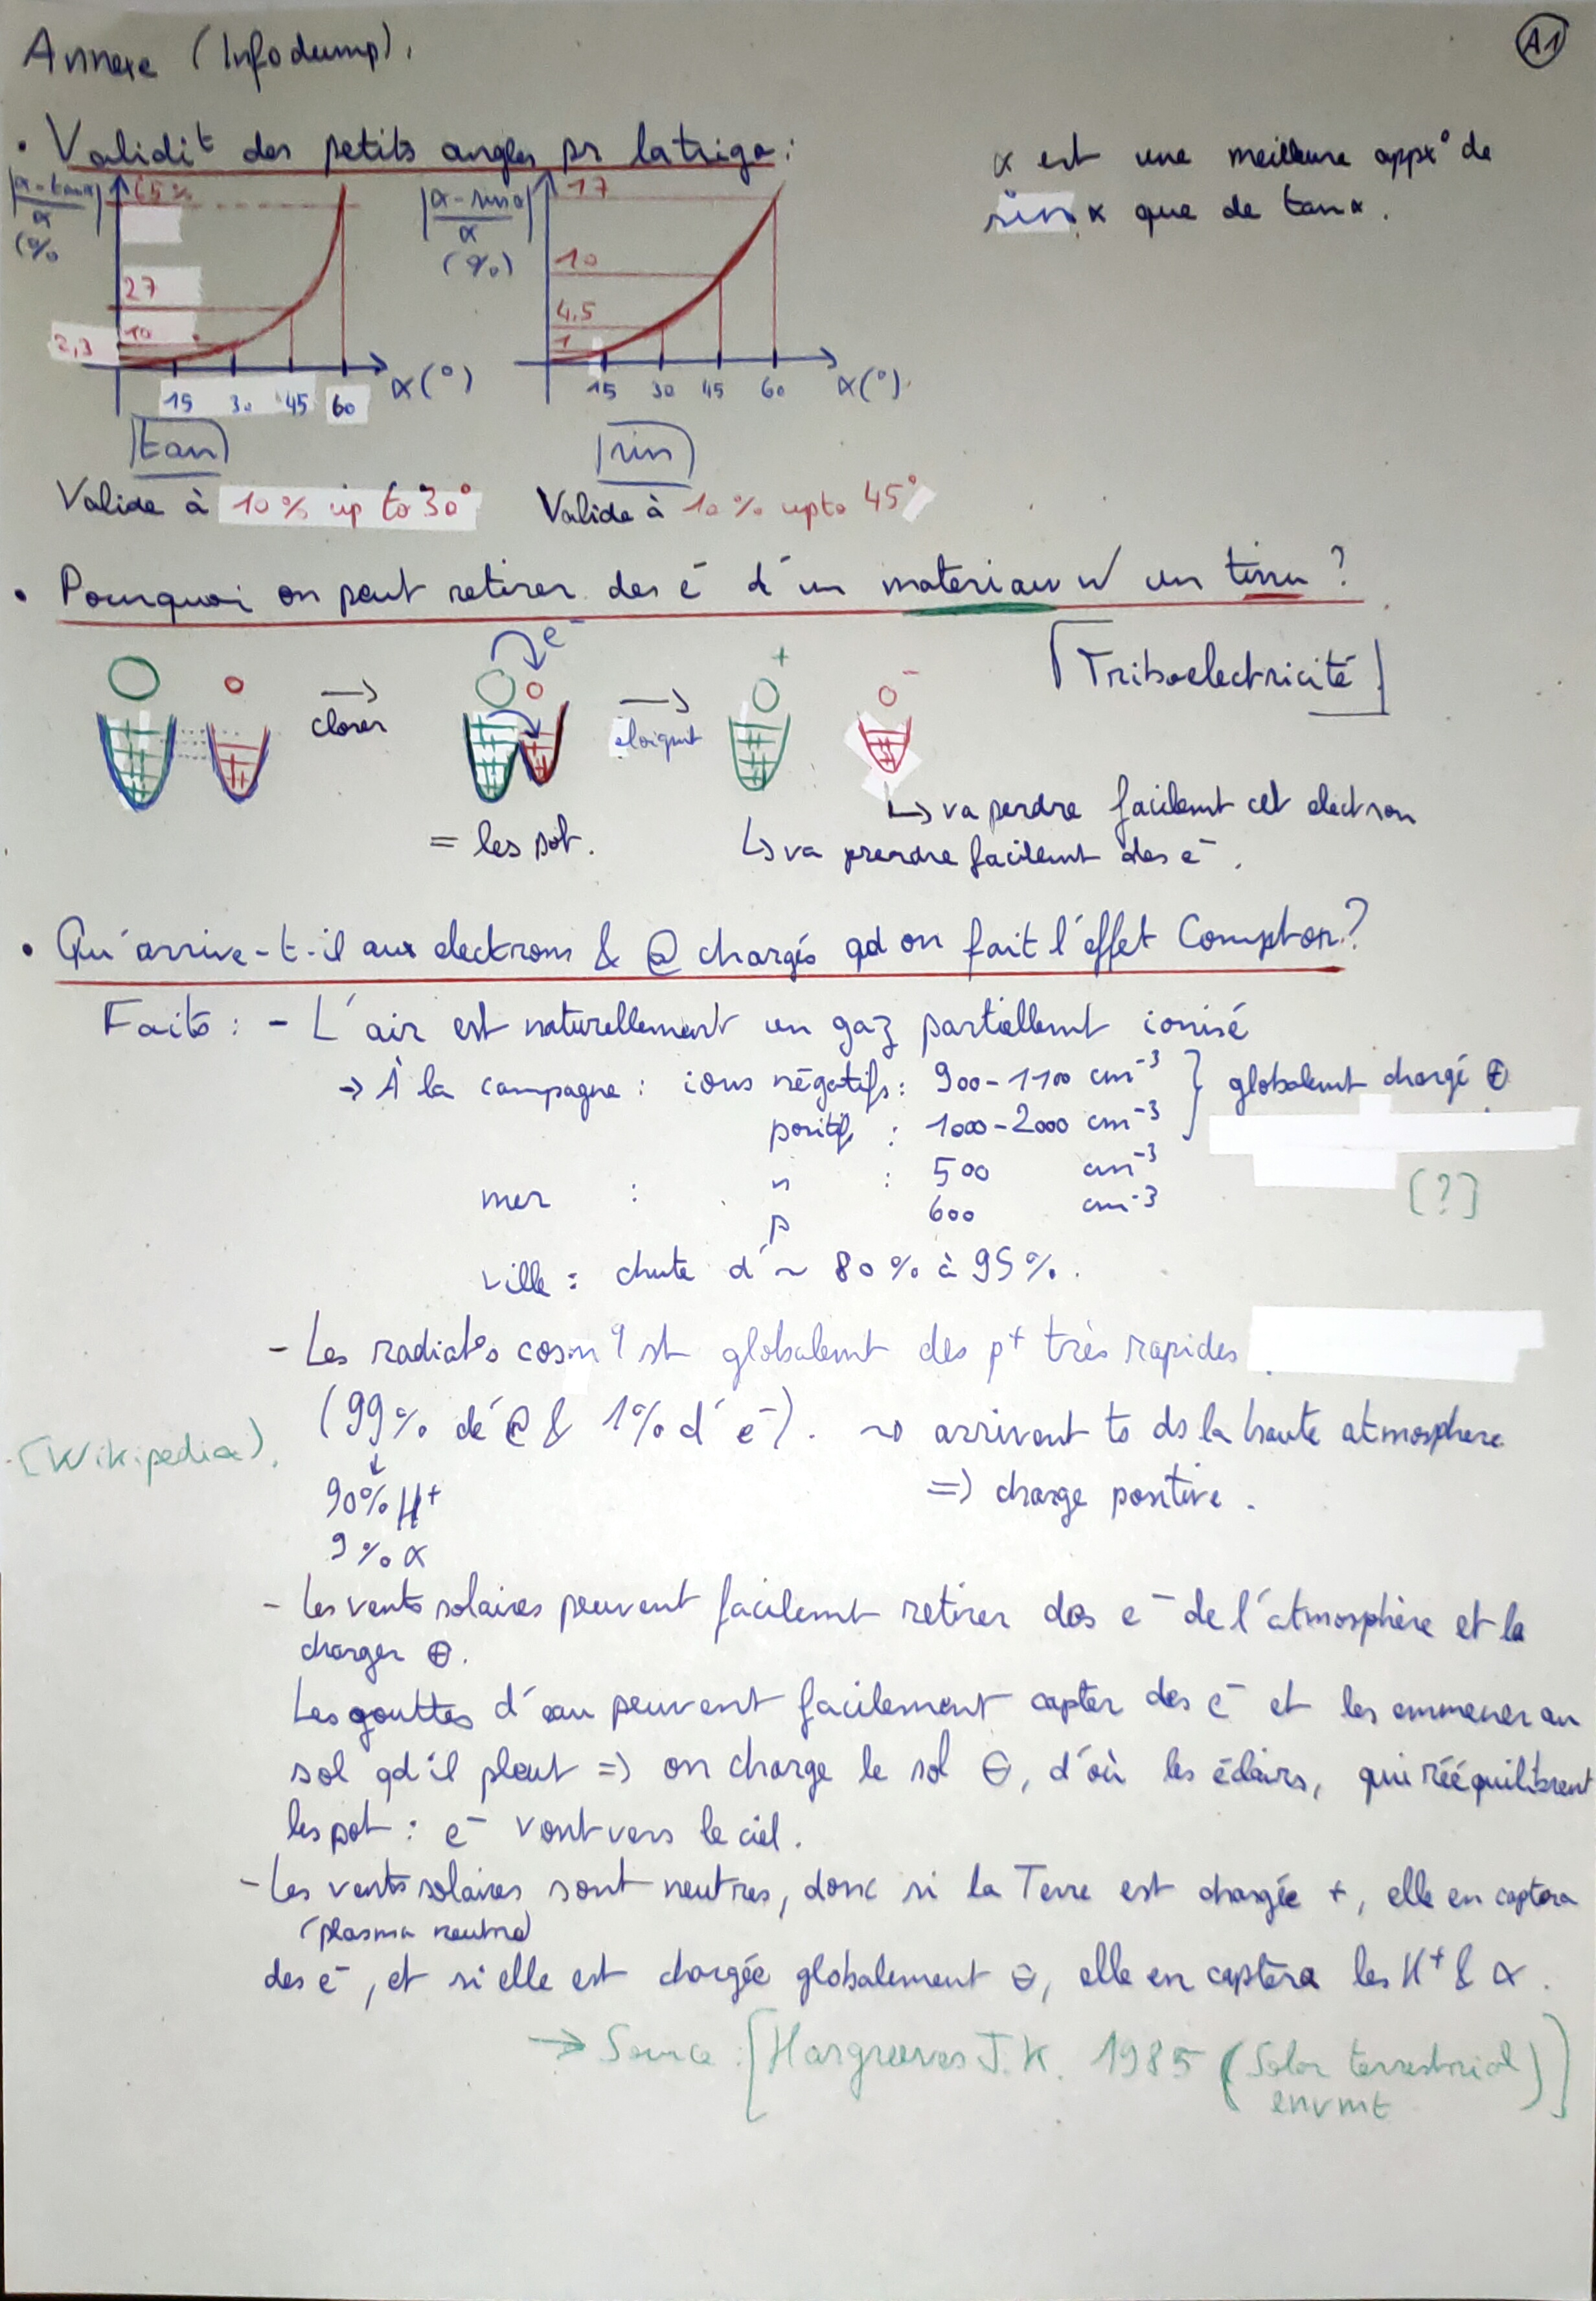 Annexe (Infodump).
A1
• Validité des petits angles pr la trigo :
α est une meilleure appx° de
sin α que de tan α.
|α - tan α| / α (%)
65%
27
10
2,3
15 30 45 60 α(°)
|α - sin α| / α (%)
17
10
4,5
1
15 30 45 60 α(°)
tan
sin
Valide à 10% up to 30°
Valide à 10% up to 45°
• Pourquoi on peut retirer des e⁻ d'un materiau w/ un tissu ?
e⁻
+
-
Triboelectricité
closer
éloignt
↳ va perdre facilemt cet electron
= les pot.
↳ va prendre facilemt des e⁻.
• Qu'arrive-t-il aux electrons & @ chargés qd on fait l'effet Compton ?
Faits : - L'air est naturellement un gaz partiellemt ionisé
→ À la campagne : ions négatifs : 900-1100 cm⁻³ } globalemt chargé ⊕
positifs : 1000-2000 cm⁻³
mer : n : 500 cm⁻³
p 600 cm⁻³
[?]
ville : chute d'~ 80% à 95%.
- Les radiat°s cosmq st globalemt des p⁺ très rapides
(99% de @ & 1% d'e⁻). ~> arrivent ts ds la haute atmosphere
[Wikipedia].
↓
90% H⁺
=> charge positive.
9% α
- Les vents solaires peuvent facilemt retirer des e⁻ de l'atmosphère et la
charger ⊕.
Les gouttes d'eau peuvent facilement capter des e⁻ et les emmener au
sol qd il pleut => on charge le sol ⊖, d'où les éclairs, qui rééquilibrent
les pot : e⁻ vont vers le ciel.
- Les vents solaires sont neutres, donc si la Terre est chargée +, elle en captera
(plasma neutre)
des e⁻, et si elle est chargée globalement ⊖, elle en captera les H⁺ & α.
→ Source : [Hargreaves J.K. 1985 (Solar terrestrial
envmt)]